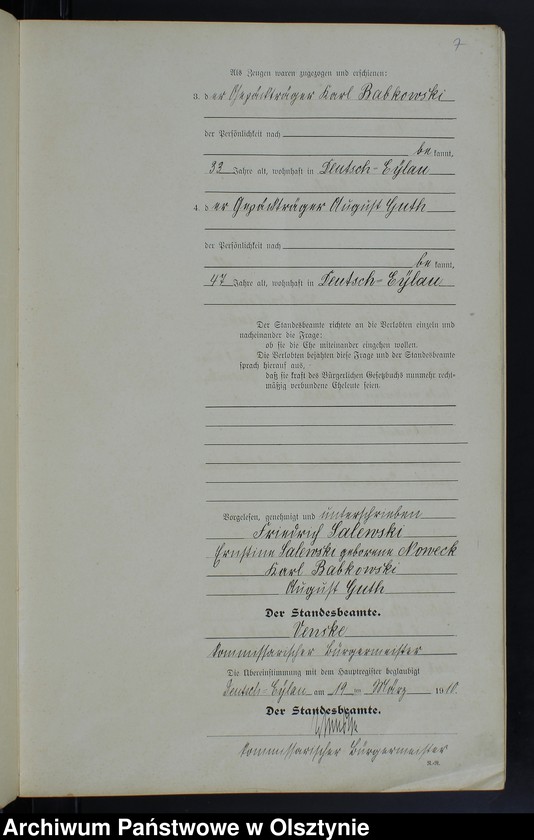 7
Als Zeugen waren zugezogen und erschienen:
3. der Gepäckträger Karl Babkowski
der Persönlichkeit nach
bekannt,
33 Jahre alt, wohnhaft in Deutsch-Eylau
4. der Gepäckträger August Guth
der Persönlichkeit nach
bekannt,
47 Jahre alt, wohnhaft in Deutsch-Eylau
Der Standesbeamte richtete an die Verlobten einzeln und
nacheinander die Frage:
ob sie die Ehe miteinander eingehen wollen.
Die Verlobten bejahten diese Frage und der Standesbeamte
sprach hierauf aus,
daß sie kraft des Bürgerlichen Gesetzbuchs nunmehr recht-
mäßig verbundene Eheleute seien.
Vorgelesen, genehmigt und unterschrieben
Friedrich Salewski
Ernstine Salewski geborene Noweck
Karl Babkowski
August Guth
Der Standesbeamte.
Venske
kommissarischer Bürgermeister
Die Übereinstimmung mit dem Hauptregister beglaubigt
Deutsch-Eylau am 19 ten März 1910.
Der Standesbeamte.
kommissarischer Bürgermeister
Archiwum Państwowe w Olsztynie